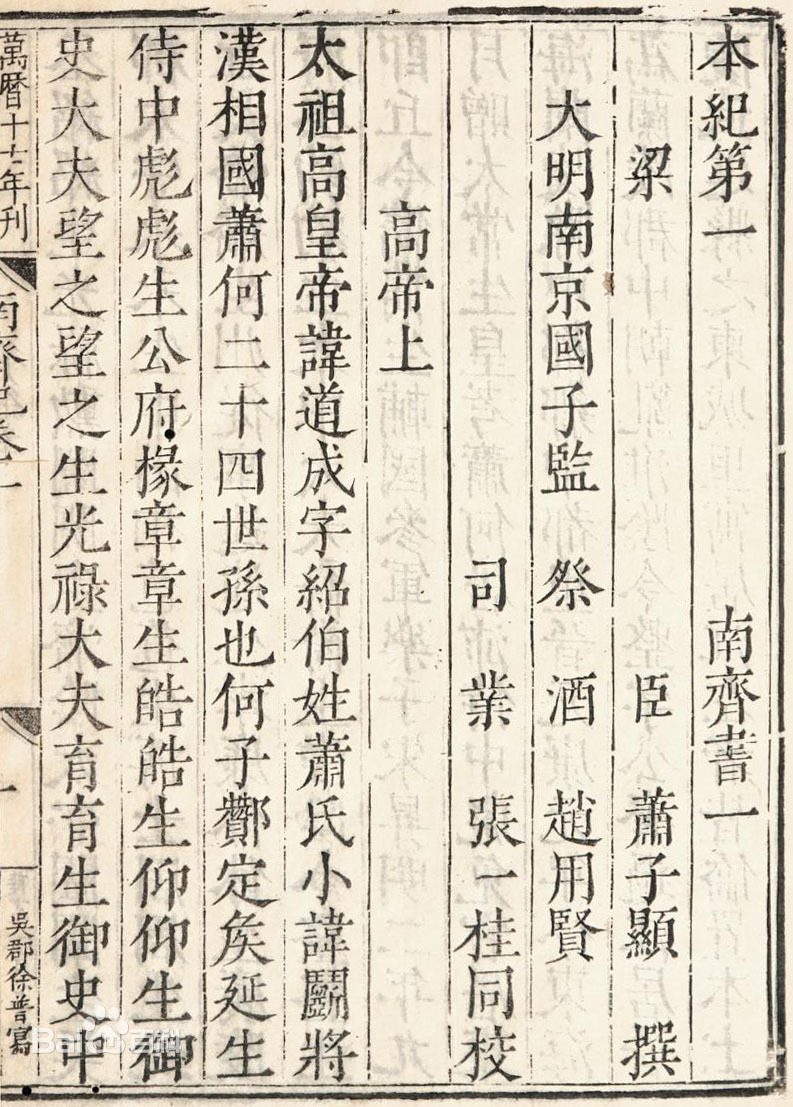 本紀第一 南齊書一
梁 臣 蕭子顯 撰
大明南京國子監 祭 酒 趙用賢
司 業 張一桂同校
高帝上
太祖高皇帝諱道成字紹伯姓蕭氏小諱鬭將
漢相國蕭何二十四世孫也何子酇定矦延生
侍中彪彪生公府掾章章生皓皓生仰仰生御
史大夫望之望之生光祿大夫育育生御史中
萬曆十七年刊
南齊紀卷一
一
吳郡徐普寫
Baidu百科